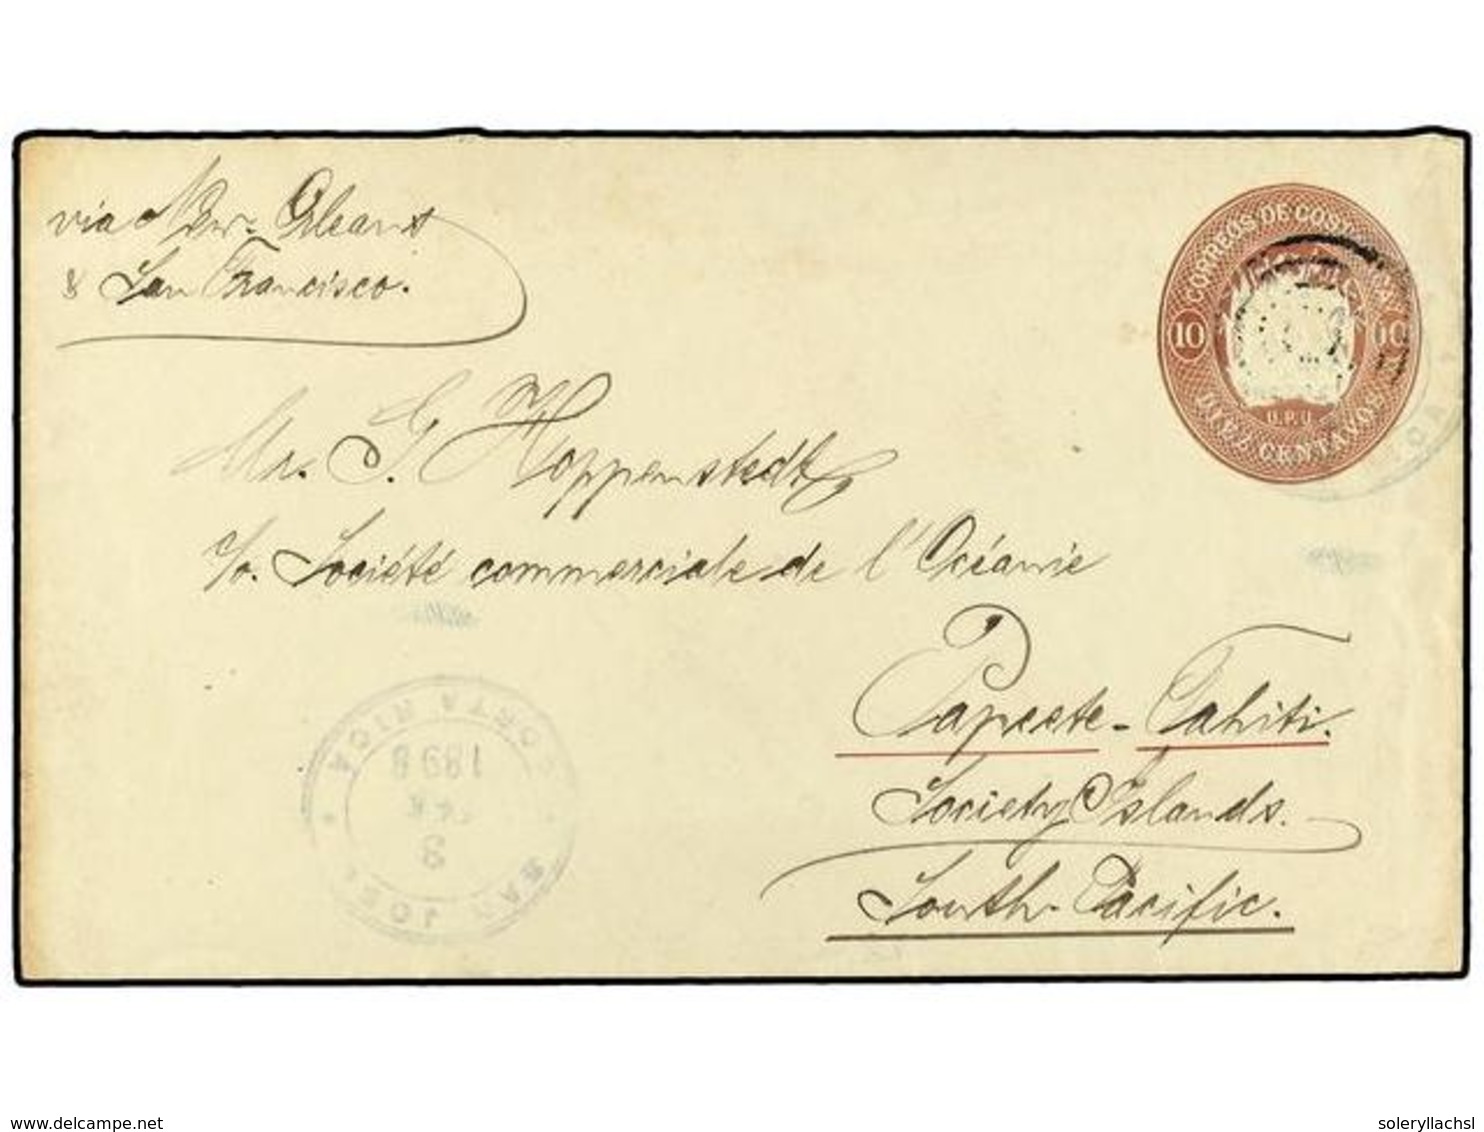 via New-Orleans
& San Francisco.
CORREOS DE COSTA RICA
10 10
U.P.U.
DIEZ CENTAVOS
Mr. G. Hoppenstedt
c/o. Société commerciale de l'Océanie
Papeete - Tahiti.
Society Islands.
South-Pacific.
COSTA RICA
1898
3
SAN JOSE
delcampe.net
soleryllachsl